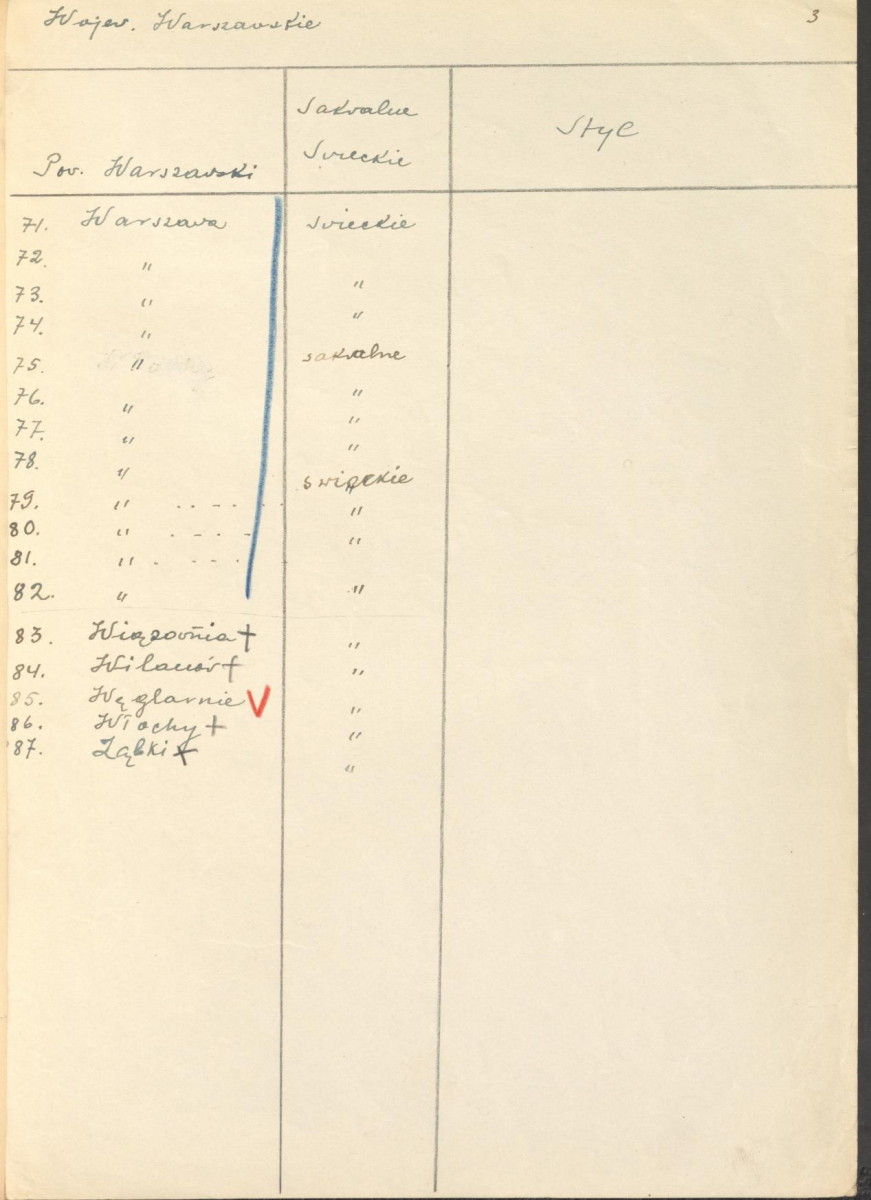 Wojew. Warszawskie 3
Sakralne
Styl
Świeckie
Pow. Warszawski
71. Warszawa świeckie
72. "
73. " "
74. " "
75. " sakralne
76. " "
77. " "
78. " "
świeckie
79. " . . - . "
80. " . - . - "
81. " . - - .
82. " "
83. Wiązownia + "
84. Wilanów + "
85. Węglarnie V "
86. Włochy + "
87. Ząbki + "